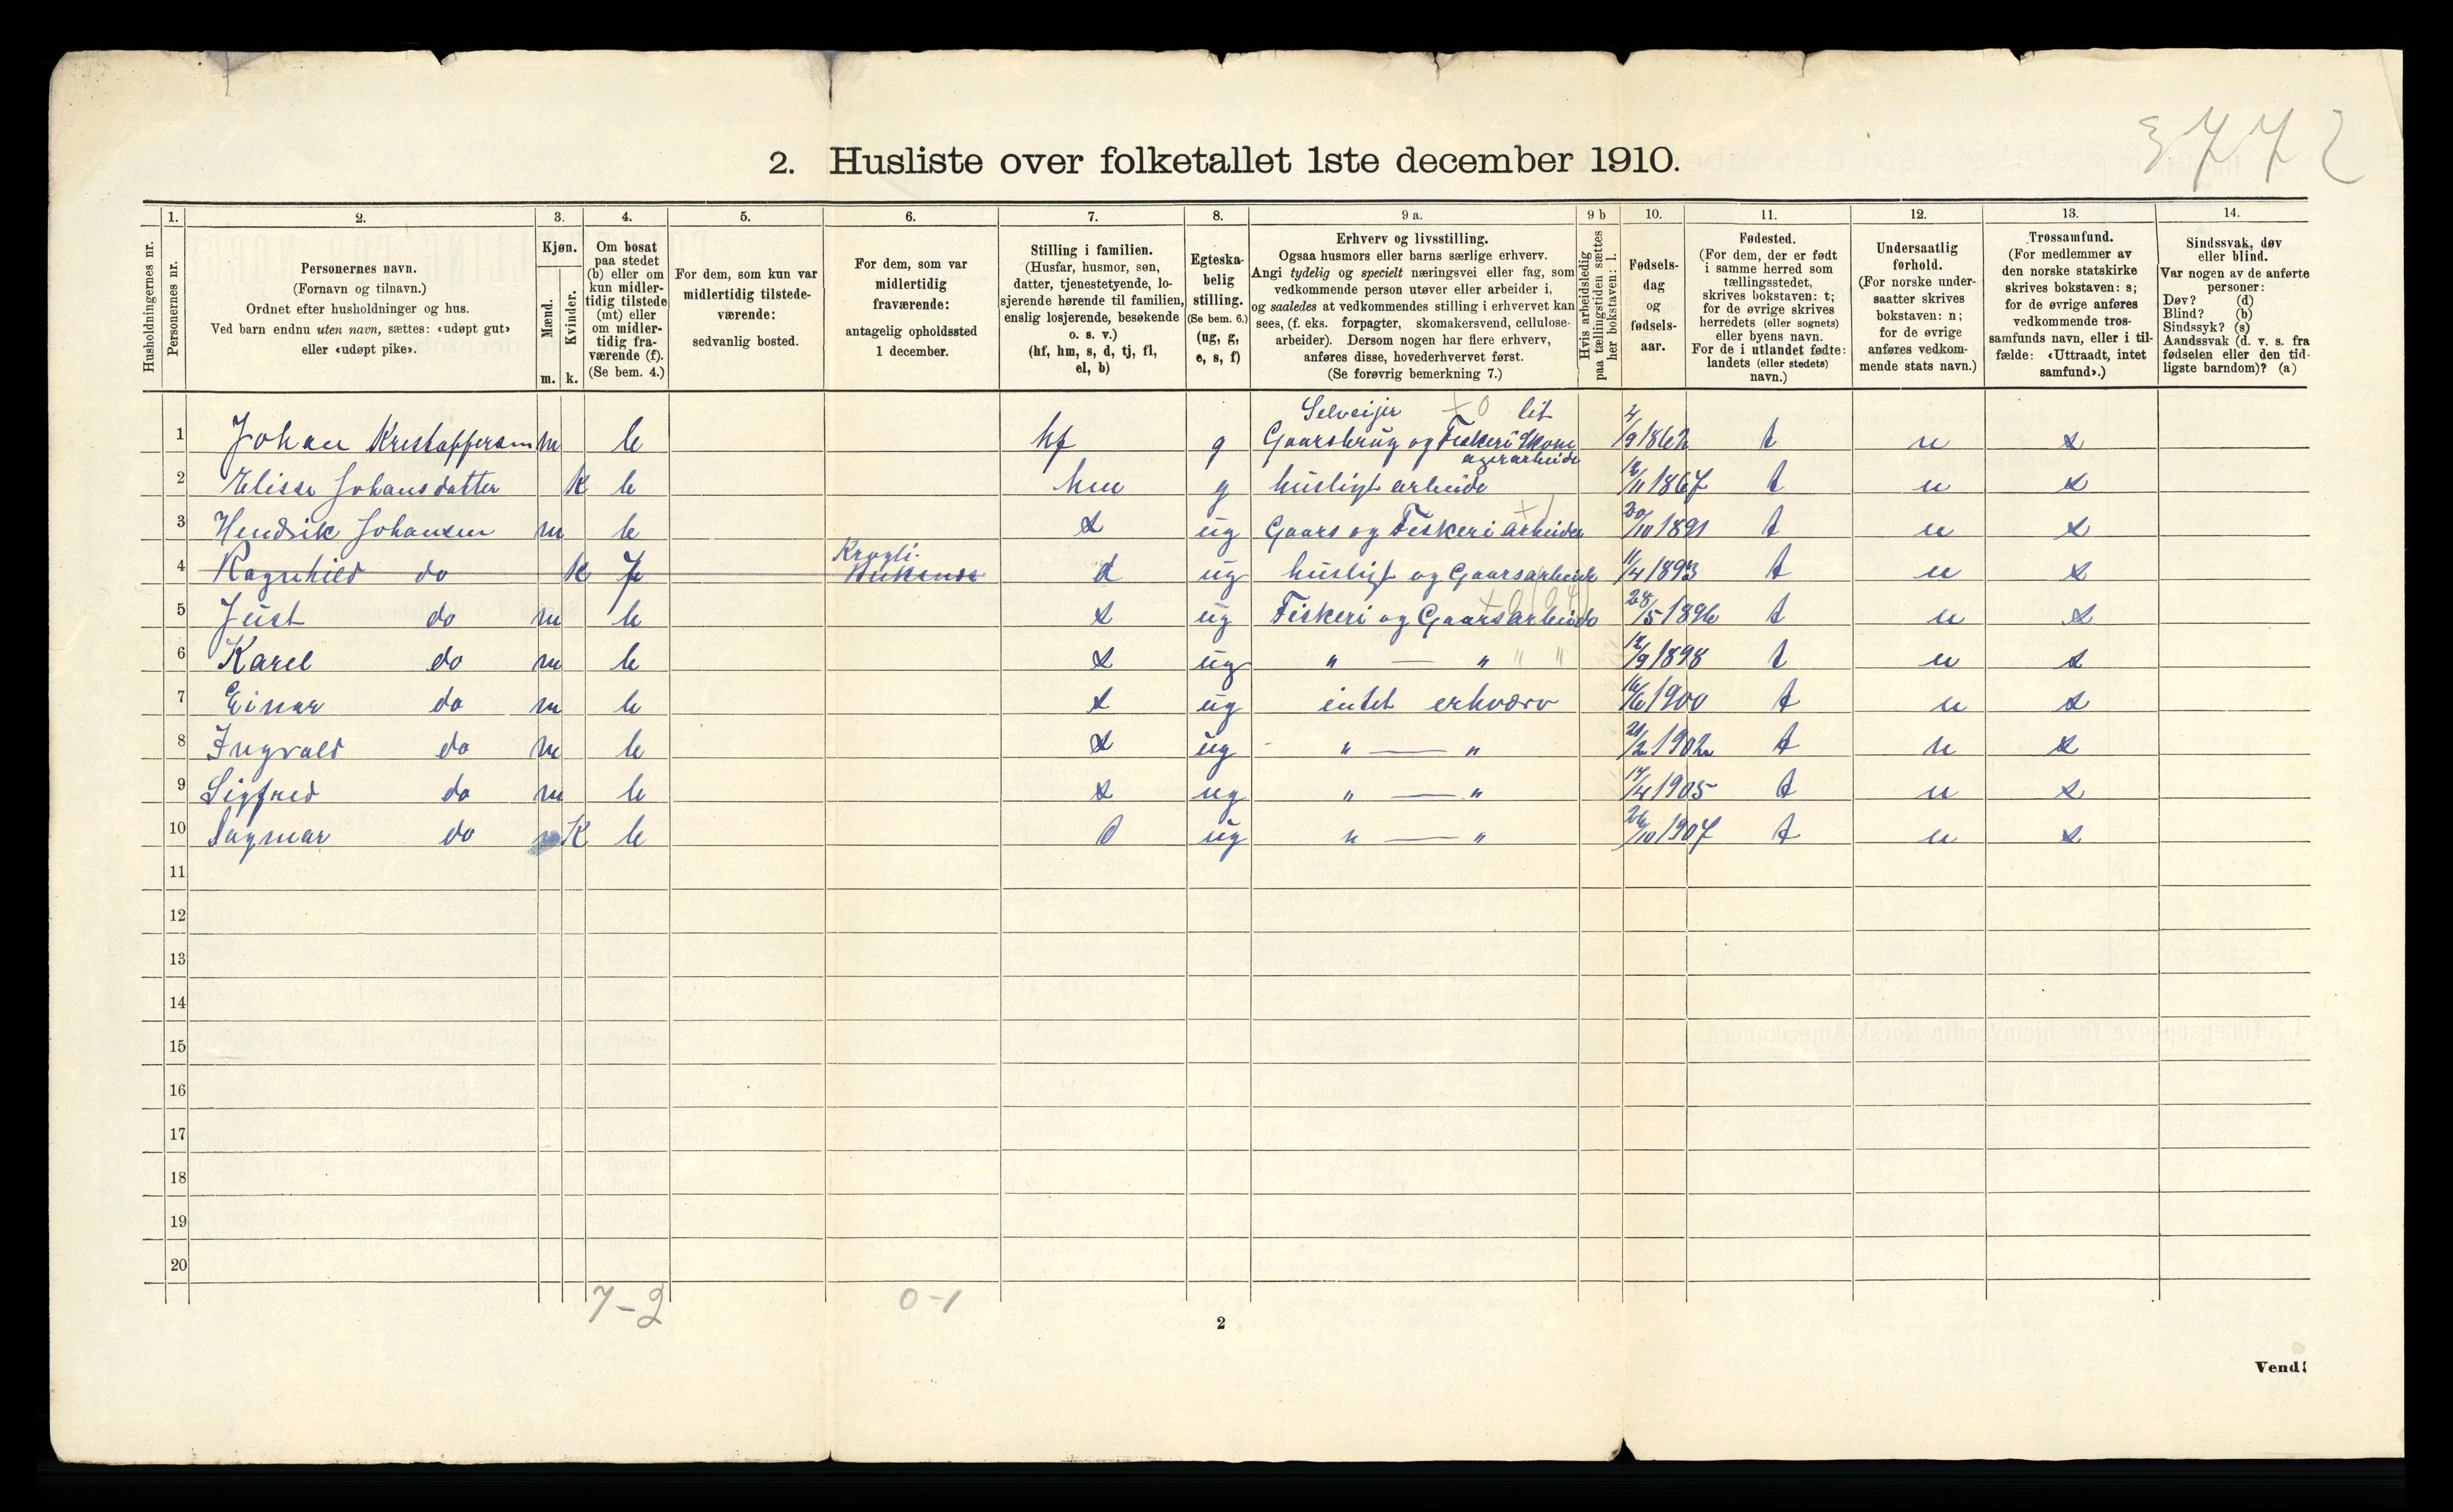 3772
2. Husliste over folketallet 1ste december 1910.
1. 2. 3. 4. 5. 6. 7. 8. 9 a. 9 b 10. 11. 12. 13. 14.
Husholdningernes nr.
Personernes nr.
Personernes navn.
(Fornavn og tilnavn.)
Ordnet efter husholdninger og hus.
Ved barn endnu uten navn, sættes: «udøpt gut»
eller «udøpt pike».
Kjøn.
Mænd.
Kvinder.
m. k.
Om bosat
paa stedet
(b) eller om
kun midler-
tidig tilstede
(mt) eller
om midler-
tidig fra-
værende (f).
(Se bem. 4.)
For dem, som kun var
midlertidig tilstede-
værende:
sedvanlig bosted.
For dem, som var
midlertidig
fraværende:
antagelig opholdssted
1 december.
Stilling i familien.
(Husfar, husmor, søn,
datter, tjenestetyende, lo-
sjerende hørende til familien,
enslig losjerende, besøkende
o. s. v.)
(hf, hm, s, d, tj, fl,
el, b)
Egteska-
belig
stilling.
(Se bem. 6.)
(ug, g,
e, s, f)
Erhverv og livsstilling.
Ogsaa husmors eller barns særlige erhverv.
Angi tydelig og specielt næringsvei eller fag, som
vedkommende person utøver eller arbeider i,
og saaledes at vedkommendes stilling i erhvervet kan
sees, (f. eks. forpagter, skomakersvend, cellulose-
arbeider). Dersom nogen har flere erhverv,
anføres disse, hovederhvervet først.
(Se forøvrig bemerkning 7.)
Hvis arbeidsledig
paa tællingstiden sættes
her bokstaven: l.
Fødsels-
dag
og
fødsels-
aar.
Fødested.
(For dem, der er født
i samme herred som
tællingsstedet,
skrives bokstaven: t;
for de øvrige skrives
herredets (eller sognets)
eller byens navn.
For de i utlandet fødte:
landets (eller stedets)
navn.)
Undersaatlig
forhold.
(For norske under-
saatter skrives
bokstaven: n;
for de øvrige
anføres vedkom-
mende stats navn.)
Trossamfund.
(For medlemmer av
den norske statskirke
skrives bokstaven: s;
for de øvrige anføres
vedkommende tros-
samfunds navn, eller i til-
fælde: «Uttraadt, intet
samfund».)
Sindssvak, døv
eller blind.
Var nogen av de anførte
personer:
Døv? (d)
Blind? (b)
Sindssyk? (s)
Aandssvak (d. v. s. fra
fødselen eller den tid-
ligste barndom)? (a)
Selveijer +0 lit
1 Johan Kristoffersen m b hf g Gaarsbrug og Fiskeri Skom 4/9 1862 t n s
agerarbeide
2 Elise Johansdatter K b hm g husligt arbeide 12/11 1867 t n s
3 Hendrik Johansen m b s ug Gaars og Fiskeri arbeider 20/10 1891 t n s
4 Ragnhild do K f d ug husligt og Gaarsarbeide 11/4 1893 t n s
5 Just do m b s ug Fiskeri og Gaarsarbeide 28/5 1896 t n s
6 Karel do m b s ug " — " " " 12/9 1898 t n s
7 Einar do m b s ug intet erhværv 16/6 1900 t n s
8 Ingvald do m b s ug " — " 21/2 1902 t n s
9 Sigfred do m b s ug " — " 17/4 1905 t n s
10 Dagmar do K b d ug " — " 26/10 1907 t n s
11
12
13
14
15
16
17
18
19
20
7-2 0-1
2
Vend!